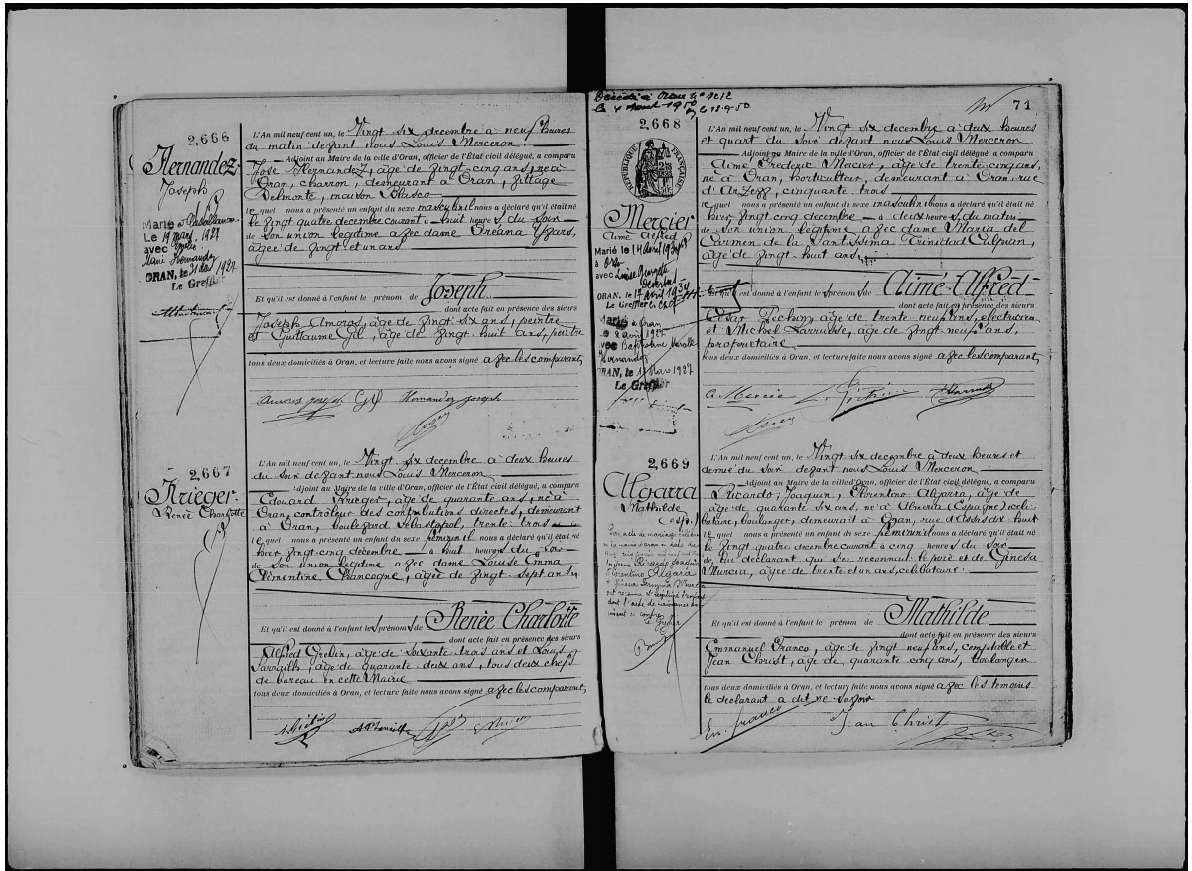 2,666
Hernandez
Joseph
Marié à
Le 19 mars 1927
avec
Hernandez
ORAN, le 1927
Le Greffier
L'An mil neuf cent un, le Vingt six decembre à neuf heures
du matin devant nous Louis Merceron
Adjoint au Maire de la ville d'Oran, officier de l'État civil délégué, a comparu
José Hernandez, âgé de vingt cinq ans, né à
Oran, charron, demeurant à Oran, village
Delmonte, maison Blasco
lequel nous a présenté un enfant du sexe masculin il nous a déclaré qu'il était né
le vingt quatre decembre courant à huit heures du soir
de son union légitime avec dame Oreana Yvars,
âgée de vingt et un ans
Et qu'il est donné à l'enfant le prénom de Joseph
dont acte fait en présence des sieurs
Joseph Amoros, âgé de vingt six ans, peintre
et Guillaume Gil, âgé de vingt huit ans, peintre
tous deux domiciliés à Oran, et lecture faite nous avons signé avec les comparant,
Amoros Joseph Gil Hernandez Joseph
2,667
Krieger
Renée Charlotte
L'An mil neuf cent un, le Vingt six decembre à deux heures
du soir devant nous Louis Merceron
Adjoint au Maire de la ville d'Oran, officier de l'État civil délégué, a comparu
Edouard Krieger, âgé de quarante ans, né à
Oran, contrôleur des contributions directes, demeurant
à Oran, boulevard Sébastopol, trente trois
lequel nous a présenté un enfant du sexe féminin il nous a déclaré qu'il était né
hier vingt cinq decembre à huit heures du soir
de son union légitime avec dame Louise Emma
Clémentine Chancogne, âgée de vingt sept ans
Et qu'il est donné à l'enfant les prénoms de Renée Charlotte
dont acte fait en présence des sieurs
Alfred Grelin, âgé de soixante trois ans et Louis
âgé de quarante deux ans, tous deux chefs
de bureau en cette Mairie
tous deux domiciliés à Oran, et lecture faite nous avons signé avec les comparant,
Décédé à Oran n° 1212
le 4 Aout 1950
71
2,668
RÉPUBLIQUE FRANÇAISE
Mercier
Aimé Alfred
Marié le 14 Avril 1934
à Oran
avec Louise Georgette
ORAN, le 17 Avril 1934
Le Greffier
Marié à Oran
avec Baptistine
Hernandez
ORAN, le Mars 1927
Le Greffier
L'An mil neuf cent un, le Vingt six decembre à deux heures
et quart du soir devant nous Louis Merceron
Adjoint au Maire de la ville d'Oran, officier de l'État civil délégué, a comparu
Aimé Frédéric Mercier, âgé de trente cinq ans,
né à Oran, horticulteur, demeurant à Oran, rue
d'Arzew, cinquante trois
lequel nous a présenté un enfant du sexe masculin il nous a déclaré qu'il était né
hier vingt cinq decembre à deux heures du matin
de son union légitime avec dame Maria del
Carmen de la Santissima Trinidad Culpian,
âgée de vingt huit ans
Et qu'il est donné à l'enfant les prénoms de Aimé Alfred
dont acte fait en présence des sieurs
César Péchin, âgé de trente neuf ans, électricien
et Michel Larrusse, âgé de vingt neuf ans,
propriétaire
tous deux domiciliés à Oran, et lecture faite nous avons signé avec les comparant,
A Mercie
2,669
Algarra
Mathilde
esp.
L'An mil neuf cent un, le Vingt six decembre à deux heures et
demie du soir devant nous Louis Merceron
Adjoint au Maire de la ville d'Oran, officier de l'État civil délégué, a comparu
Ricardo, Joaquin, Florentino Algarra, âgé de
âgé de quarante six ans, né à Almeria (Espagne) céli-
bataire, boulanger, demeurant à Oran, rue d'Assas dix huit
lequel nous a présenté un enfant du sexe féminin il nous a déclaré qu'il était né
le vingt quatre decembre courant à cinq heures du soir
de lui déclarant qui se reconnait le père et de Ginesa
Murcia, âgée de trente et un ans, célibataire
Et qu'il est donné à l'enfant le prénom de Mathilde
dont acte fait en présence des sieurs
Emmanuel Franco, âgé de vingt neuf ans, comptable et
Jean Christ, âgé de quarante cinq ans, boulanger
tous deux domiciliés à Oran, et lecture faite nous avons signé avec les témoins
le déclarant a dit ne savoir
Em. Franco Jean Christ